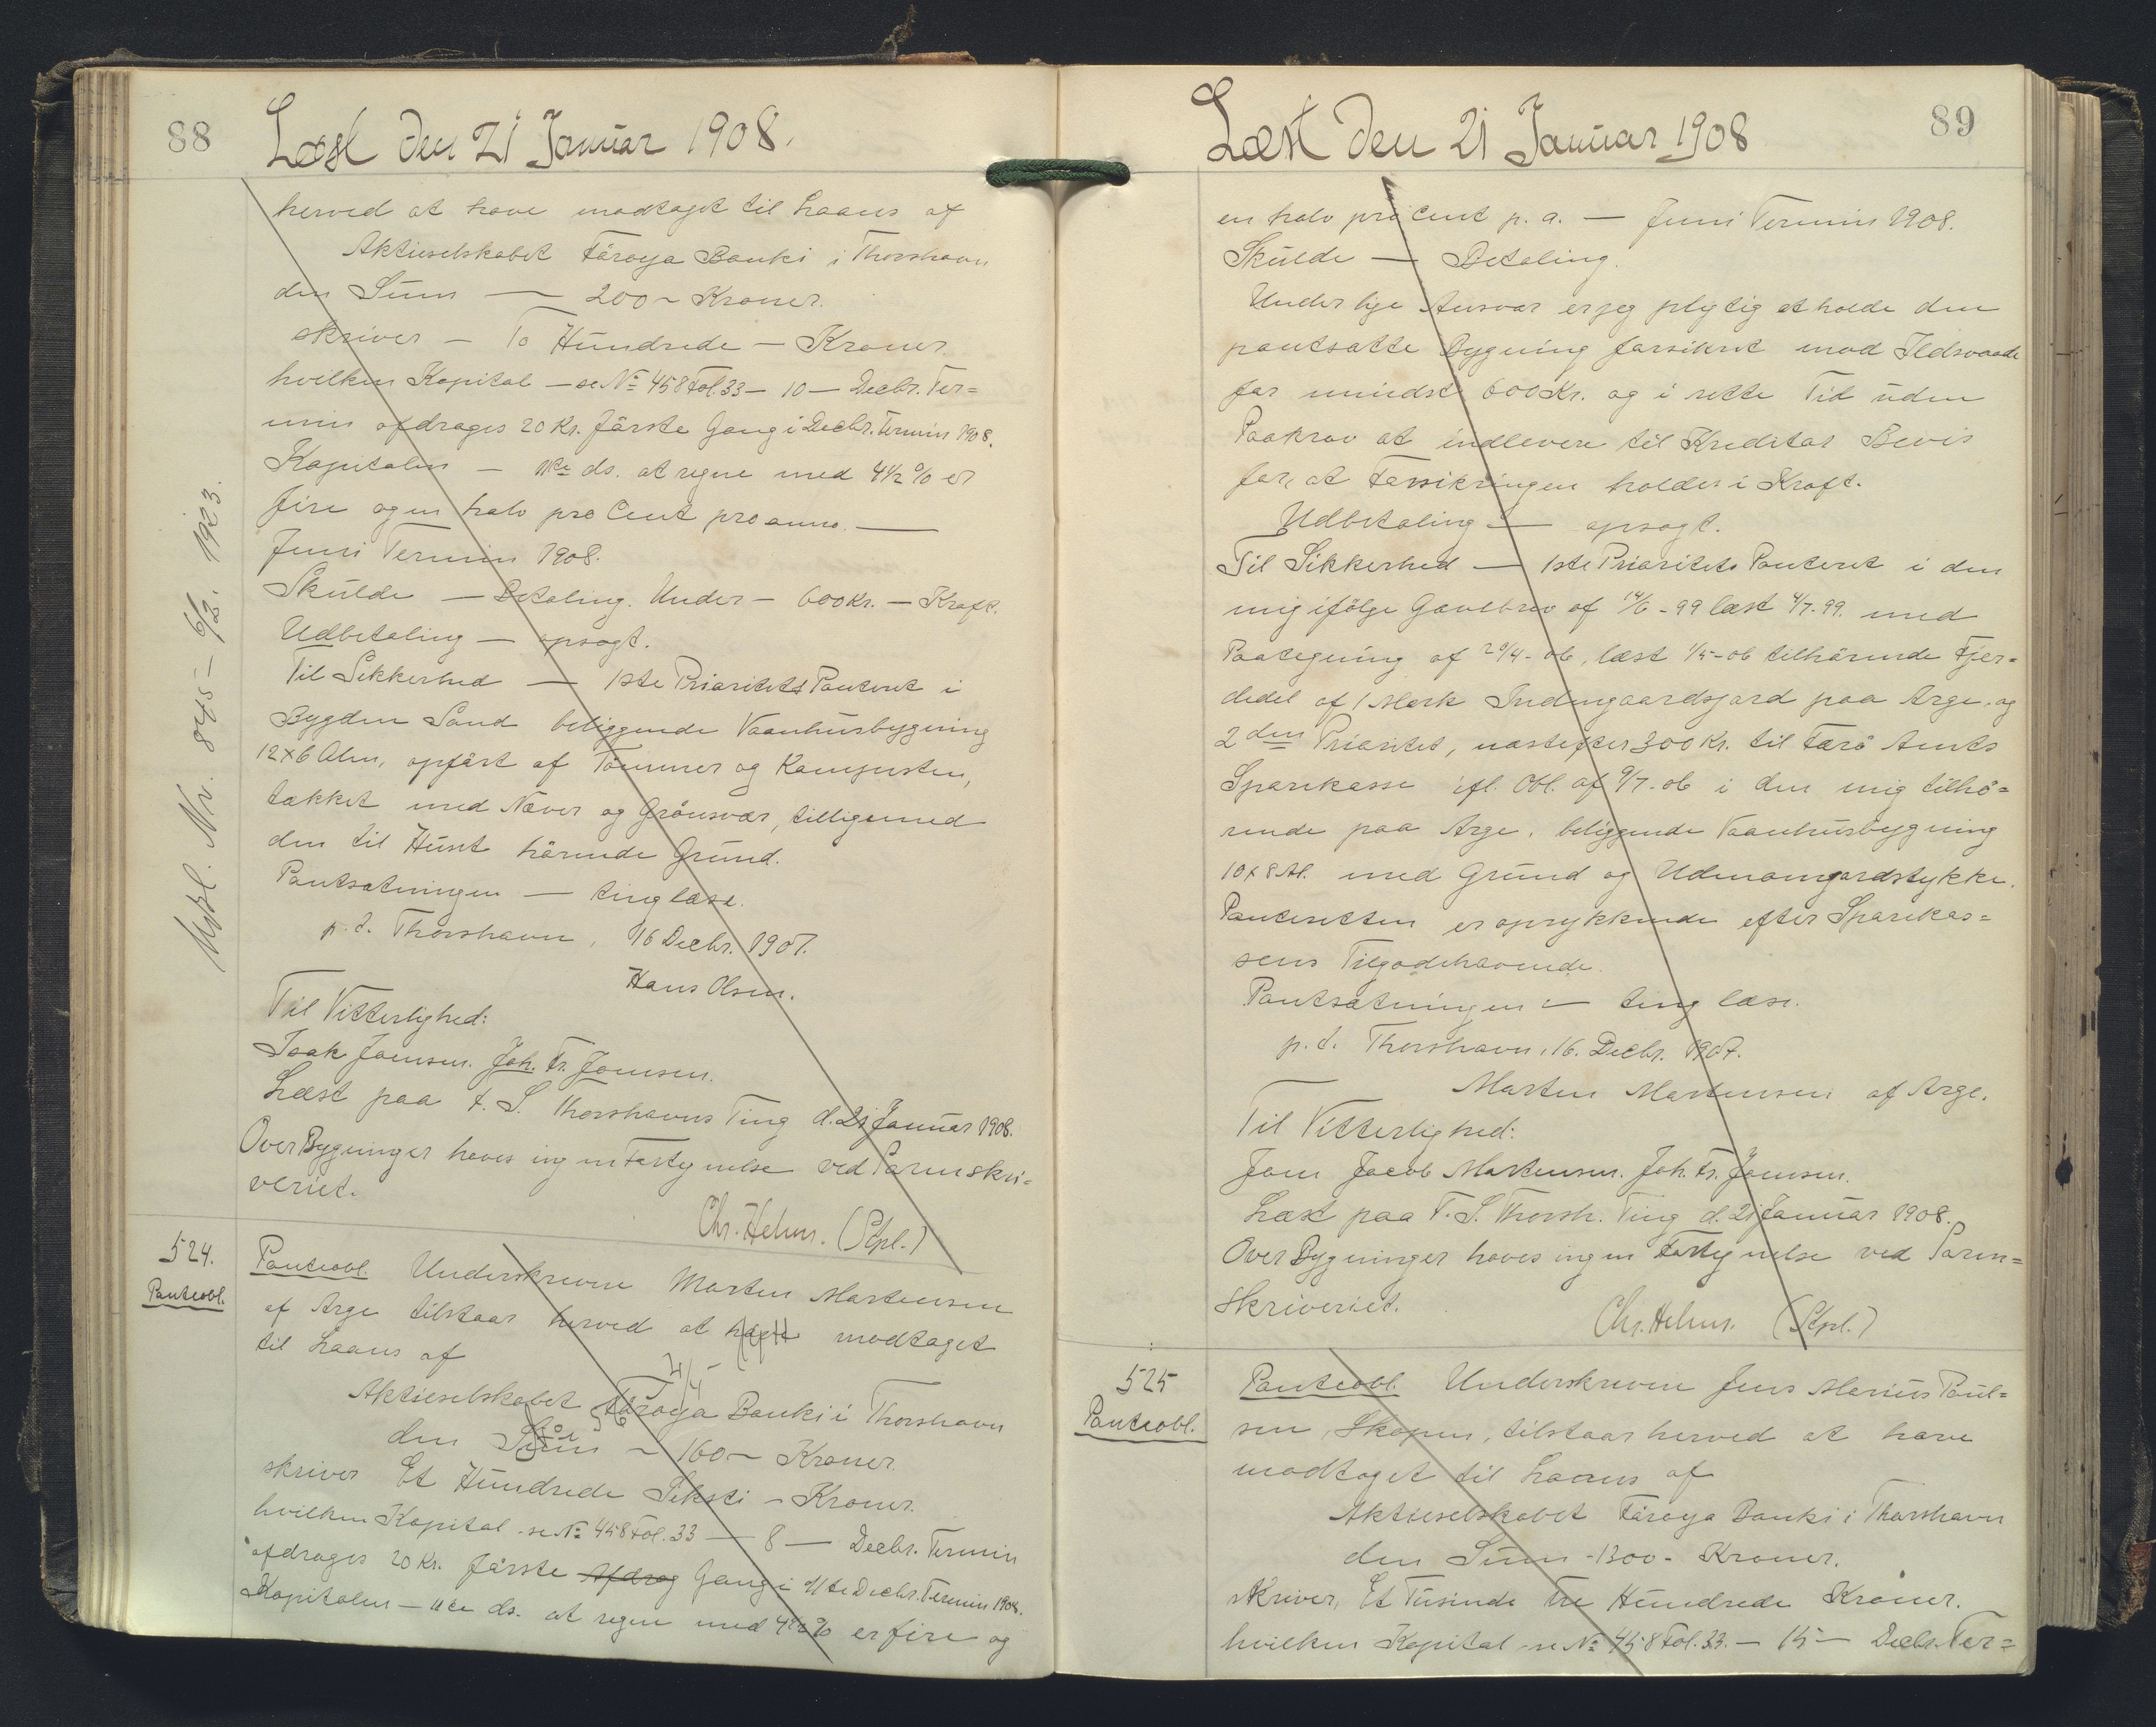 88
Læst den 21 Januar 1908.
herved at have modtaget til Laans af
Aktieselskabet Färoya Banki i Thorshavn
den Sum — 200 ~ Kroner.
skriver — To Hundrede — Kroner.
hvilken Kapital — se No 458 Fol. 33 — 10 — Decbr. Ter=
min afdrages 20 Kr. förste Gang i Decbr. Termin 1908.
Kapitalen — 11te ds. at regne med 4½ % er
fire og en halv pro Cent pro anno. —
Juni Termin 1908.
Skulde — Betaling. Under — 600 Kr. — Kraft.
Udbetaling — opsagt.
Til Sikkerhed — 1ste Prioritets Panteret i
Bygden Sand beliggende Vaanhusbygning
12 x 6 Alen, opfört af Tömmer og Kampesten,
tækket med Næver og Grönsvær, tilligemed
den til Huset hörende Grund.
Pantsætningen — tinglæse.
p. t. Thorshavn, 16 Decbr. 1907.
Hans Olsen.
Til Vitterlighed:
Isak Joensen. Joh. Fr. Joensen.
Læst paa F. S. Thorshavns Ting d. 21 Januar 1908.
Over Bygninger haves ingen Fortegnelse ved Sorenskri=
veriet.
Chr. Helms. (Stpl.)
Udsl. Nr. 845 - 6/2. 1923.
524.
Panteobl.
Panteobl. Underskrevne Morten Mortensen
af Arge tilstaar herved at have modtaget
til Laans af
Aktieselskabet Färoya Banki i Thorshavn
den Sum ~ 160 ~ Kroner
skriver Et Hundrede Seksti ~ Kroner.
hvilken Kapital - se No 458 Fol. 33 — 8 — Decbr. Termin
afdrages 20 Kr. förste Afdrag Gang i 11te Decbr. Termin 1908.
Kapitalen — 11te ds. at regne med 4½ % er fire og
89
Læst den 21 Januar 1908
en halv pro Cent p. a. — Juni Termin 1908.
Skulde — Betaling.
Under lige Ansvar er jeg pligtig at holde den
pantsatte Bygning forsikret mod Ildsvaade
for mindst 600 Kr. og i rette Tid uden
Paakrav at indlevere til Kreditor Bevis
for, at Forsikringen holdes i Kraft.
Udbetaling — opsagt.
Til Sikkerhed — 1ste Prioritets Panteret i den
mig ifölge Gavebrev af 14/6 - 99 læst 4/7 - 99. med
Paategning af 20/4 - 06, læst 1/5 - 06 tilhörende Fjer=
dedel af 1 Mark Indengaardsjord paa Arge, og
2den Prioritet, næstefter 300 Kr. til Færö Amts
Sparekasse ifl. Obl. af 9/7 - 06 i den mig tilhö=
rende paa Arge, beliggende Vaanhusbygning
10 x 8 Al. med Grund og Udenomgardstykke.
Panteretten er oprykkende efter Sparekas=
sens Tilgodehavende.
Pantsætningen — tinglæse.
p. t. Thorshavn, 16. Decbr. 1907.
Morten Mortensen af Arge.
Til Vitterlighed:
Joen Jacob Mortensen. Joh. Fr. Joensen.
Læst paa F. S. Thorsh. Ting d. 21 Januar 1908.
Over Bygninger haves ingen Fortegnelse ved Soren=
skriveriet.
Chr. Helms. (Stpl.)
525
Panteobl.
Panteobl. Underskrevne Jens Marius Poul=
sen, Skopen, tilstaar herved at have
modtaget til Laans af
Aktieselskabet Färoya Banki i Thorshavn
den Sum - 1300 - Kroner.
skriver, Et Tusinde tre Hundrede Kroner.
hvilken Kapital - se No 458 Fol. 33. — 15 — Decbr. Ter=